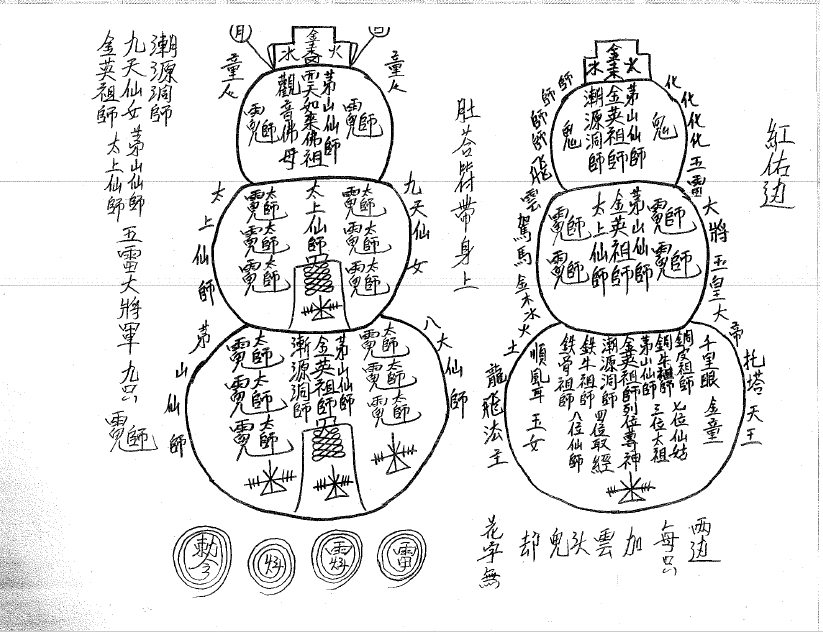 紅佑边
化化化化
五雷大將
玉皇大帝
托塔天王
金木水火
師師師師
龍雲駕馬
金木水火土
龍飛法主
茅山仙師
金英祖師
潮源洞師
鬼
鬼
茅山仙師
金英祖師
太上仙師
千里眼 金童
銅皮祖師 七位仙姑
銅牛祖師 三位太祖
茅山仙師
金英祖師列位尊神
潮源洞師 四位取經
鉄牛祖師
鉄骨祖師 八位仙師
順風耳 玉女
两边
每只
加雲头鬼却
花字無
肚荅皆帶身上
月
日
金木水火
童子
童子
茅山仙師
雲天如來佛祖
觀音佛母
九天仙女
太上仙師
太上仙師
太師 太師 太師
太師 太師 太師
八大仙師
茅山仙師
茅山仙師
金英祖師
潮源洞師
太師 太師 太師
太師 太師 太師
潮源洞師
九天仙女 茅山仙師 五雷大將軍 九只
金英祖師 太上仙師
雷
勅令